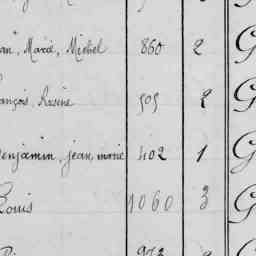 Marie, Michel 860 2 G
rançois, Rosine 505 2 G
Benjamin, jean, marie 402 1 G
Louis 1060 3 G